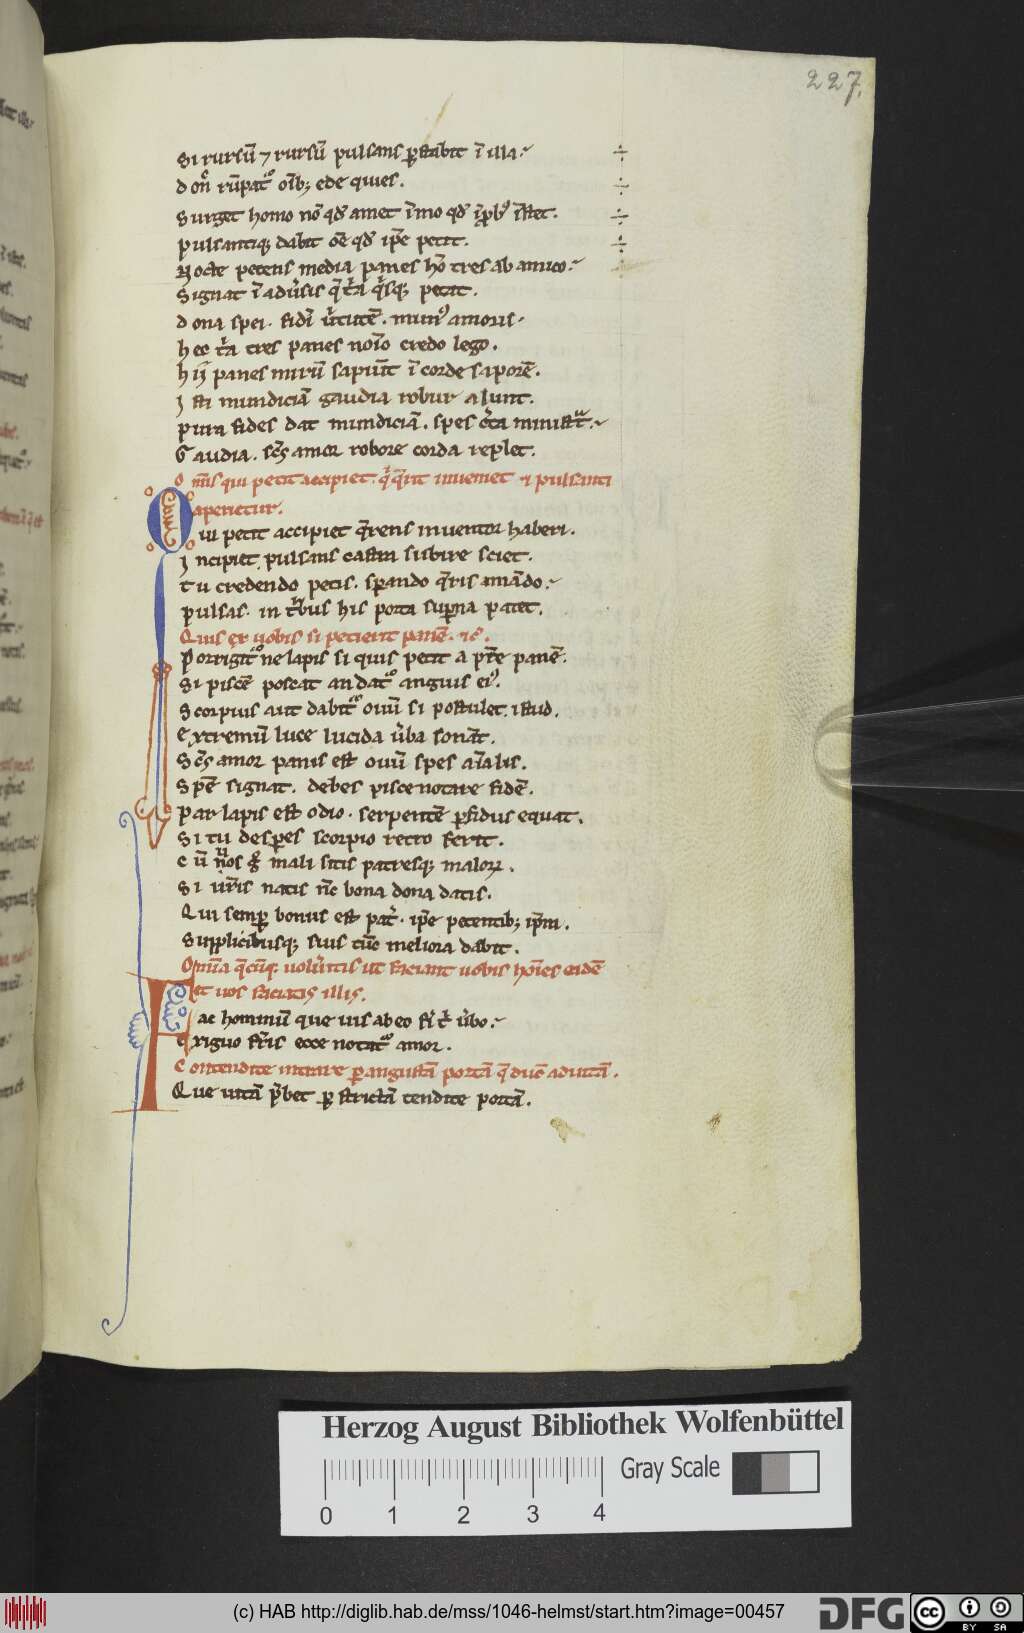 227.
Si rursū ⁊ rursū pulsans ꝑstabit ī illa.
donͨ rūpatᷣ oīb; ede quies.
Surget homo nō qđ amet īmo qđ īprobꝰ īstet.
pulsantiq; dabit oē qđ ipē petit.
Nocte petens media panes hō tres ab amico.
Signat ī adūsis petat.
dona spei. fidī ututē. munꝰ amoris.
hec tres panes noīo credo lego.
hij panes mirū sapiūt ī corde saporē.
Isti mundiciā gaudia robur alunt.
pura fides dat mundiciā. spes cͥta ministᷓt.
Gaudia. scꝰ amor robore corda replet.
Omīs qui petit accipiet. inueniet ⁊ pulsanti
aperietur.
Qui petit accipiet q̄rens inuentor haberi.
Incipiet pulsans castra subire sciet.
tu credendo petis. sperando q̄ris amādo.
pulsas. in tͥbus his porta suꝑna patet.
Quis ex uobis si petierit panē. ⁊c̄.
Porrigitᷣ ne lapis si quis petit a pr̄e panē.
Si piscē poscat an datᷣ anguis eiꝰ.
Scorpius aut dabitᷣ ouū si postulet istud.
Extremū luce lucida ūba sonāt.
Scꝰ amor panis est ouū spes aīalis.
Spē signat. debes pisce notare fidē.
par lapis est odio. serpentē ꝑfidus equat.
Si tu desperes scorpio recto ferit.
Cū uos mali sitis patresq; maloꝝ.
Si ur̄is natis nc̄ bona dona datis.
Qui semꝑ bonus est pat̄. ipē petentib; ipm̄.
Supplicibusq; suis tūc meliora dabit.
Omīa q̄cūq; uolūitis ut faciant uobis hoīes eidē
et uos faciatis illis.
Fac hominū que uis ab eo ūbo.
exiguo fr̄is ecce notatᷣ amor.
Contendite intrare ꝑ angustā portā q̄ duc̄ ad uitā.
Que uitā p̄bet ꝑ strictā tendite portā.
Herzog August Bibliothek Wolfenbüttel
Gray Scale
0 1 2 3 4
(c) HAB http://diglib.hab.de/mss/1046-helmst/start.htm?image=00457
DFG
cc BY SA